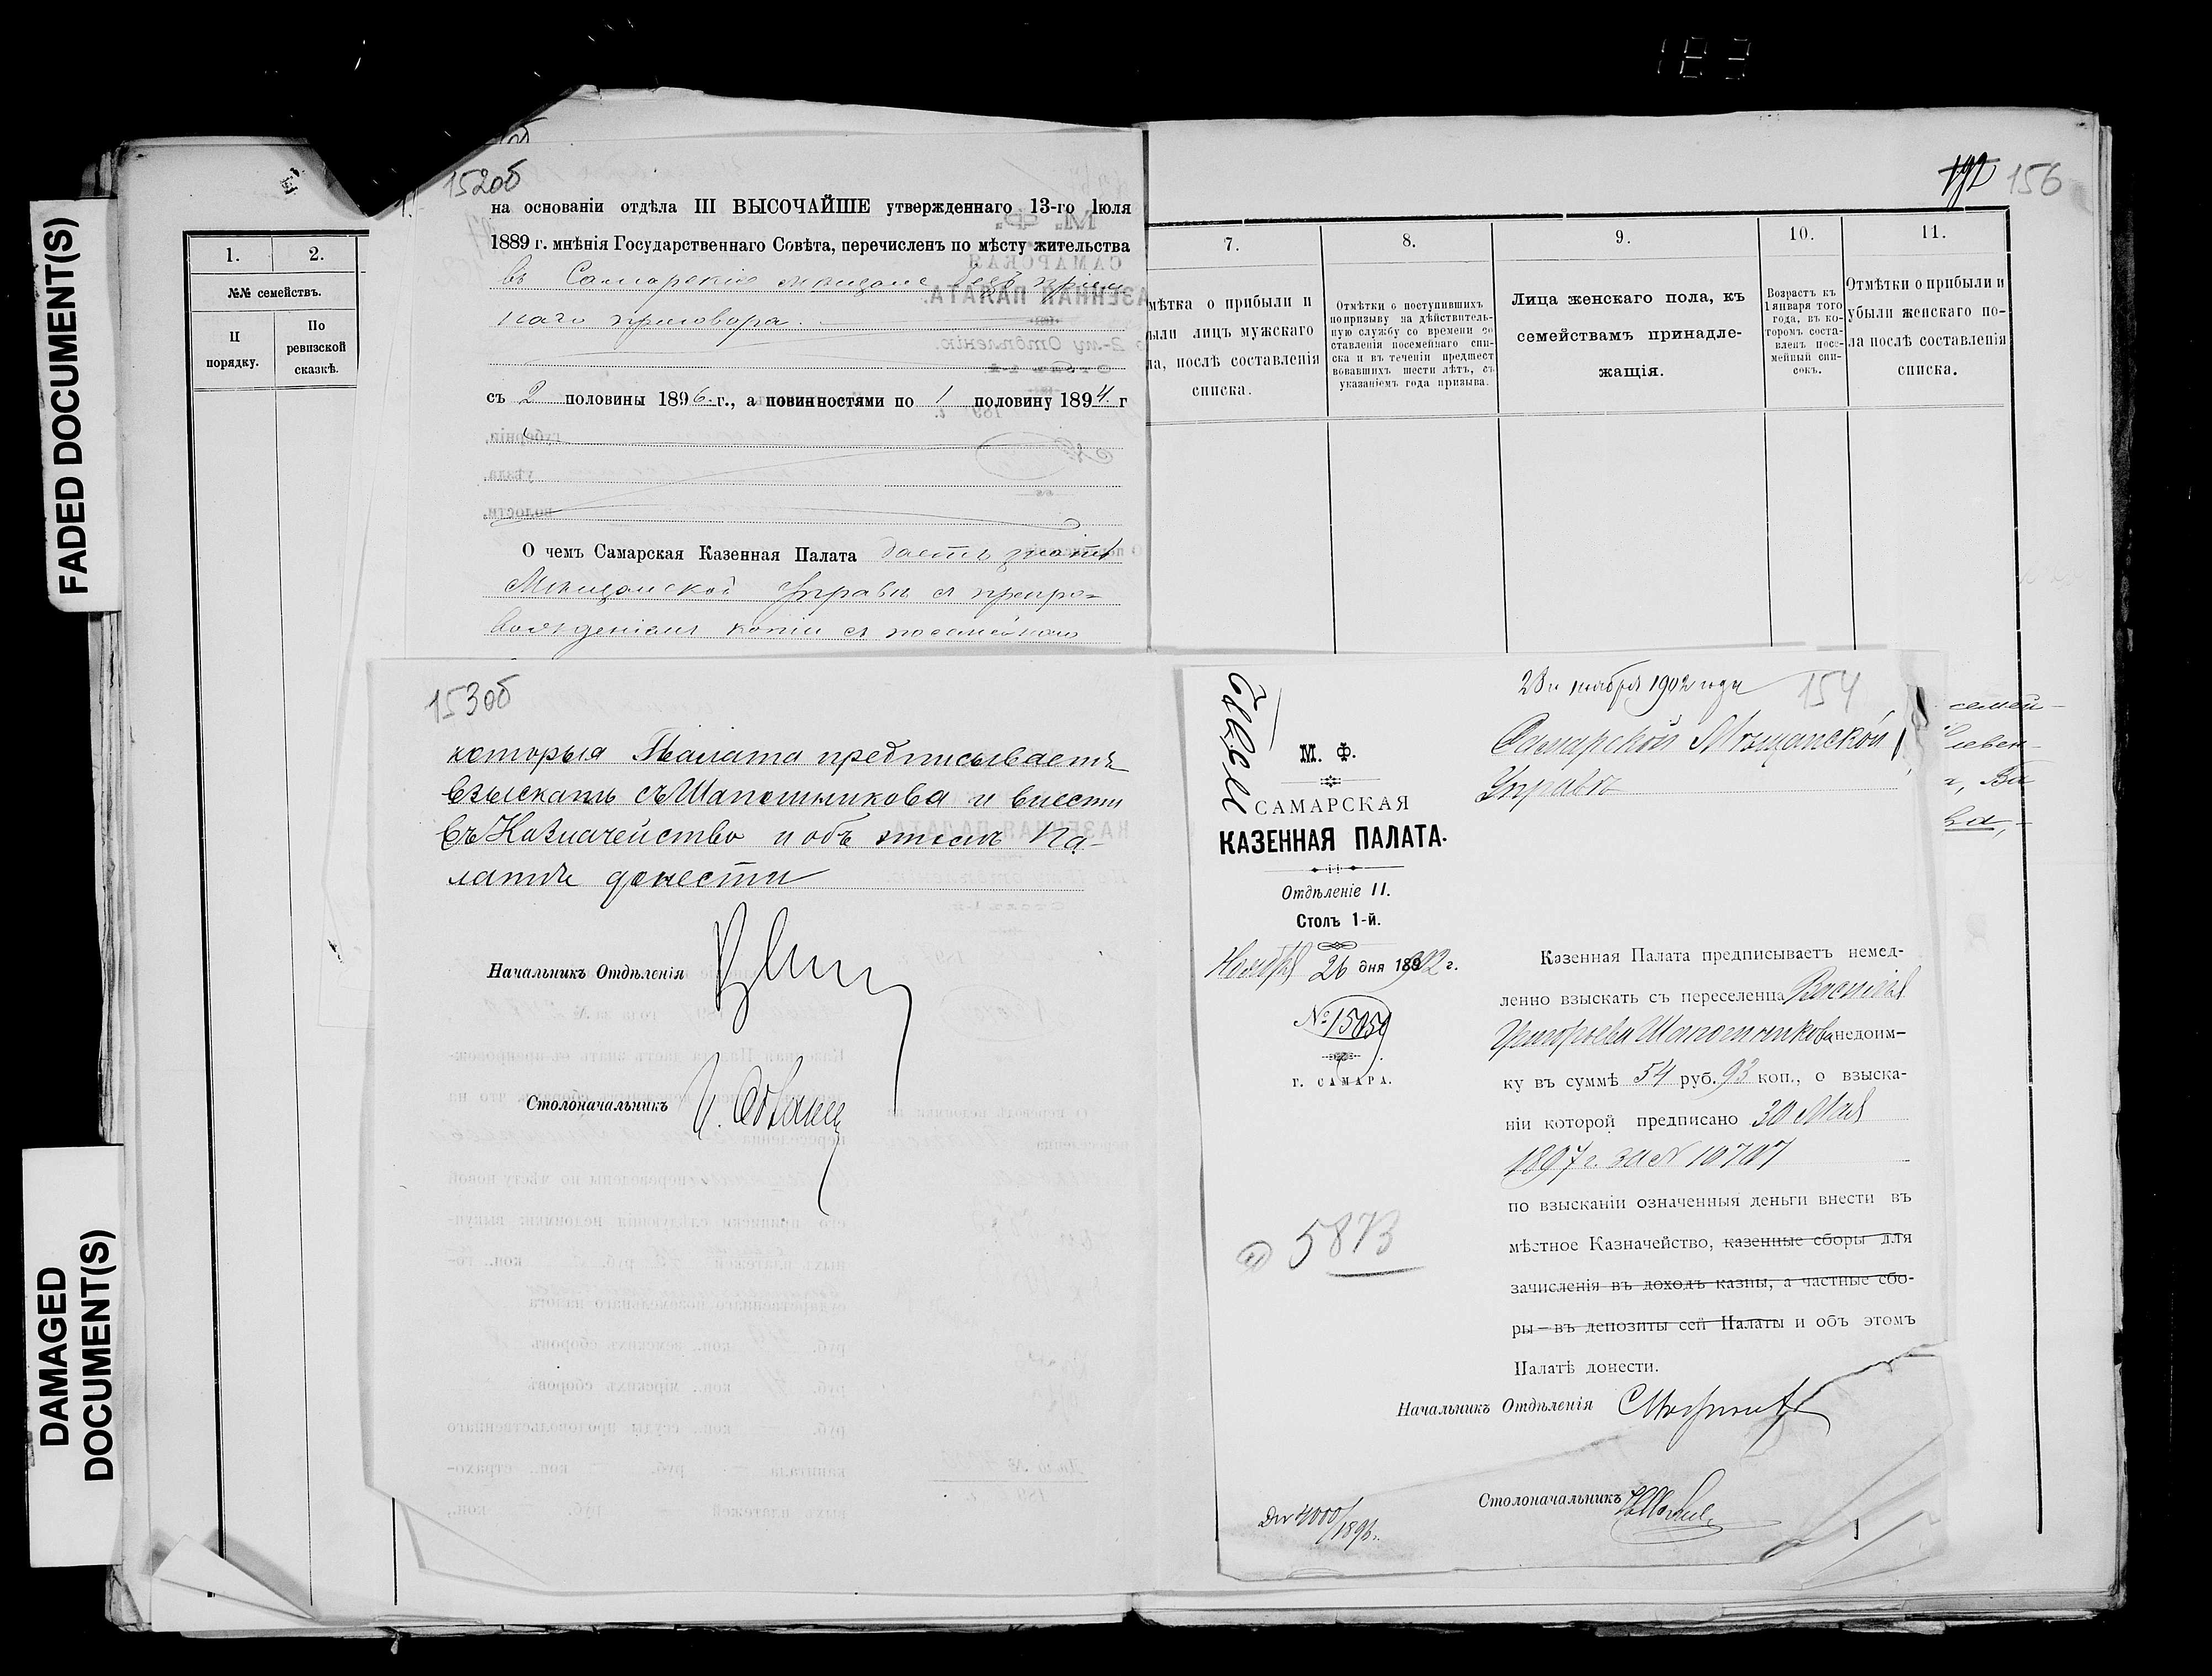 183
FADED DOCUMENT(S)
DAMAGED
DOCUMENT(S)
156
1.
2.
№№ семействъ.
П
порядку.
По
ревизской
сказкѣ.
152об
на основаніи отдѣла III ВЫСОЧАЙШЕ утвержденнаго 13-го Іюля
1889 г. мнѣнія Государственнаго Совѣта, перечисленъ по мѣсту жительства
въ Самарскіе мещане безъ пріем
наго приговора.
съ 2 половины 1896 г., а повинностями по 1 половину 1894 г
губерніи,
уѣзда,
волости,
О чемъ Самарская Казенная Палата даетъ знать
Мѣщанской Управѣ съ препро-
вожденіемъ копіи съ посемейнаго
7.
мѣтка о прибыли и
ыли лицъ мужскаго
ла, послѣ составленія
списка.
8.
Отмѣтки о поступившихъ
по призыву на дѣйствитель-
ную службу со времени со
ставленія посемейнаго спи-
ска и въ теченіи предшест
вовавшихъ шести лѣтъ, съ
указаніемъ года призыва.
9.
Лица женскаго пола, къ
семействамъ принадле-
жащія.
10.
Возрастъ къ
1 января того
года, въ ко-
торомъ соста-
вленъ посе-
мейный спи-
сокъ.
11.
Отмѣтки о прибыли и
убыли женскаго по-
ла послѣ составленія
списка.
153об
которыя Палата предписываетъ
взыскать съ Шапошникова и внести
въ Казначейство и объ этомъ Па-
латѣ донести
Начальникъ Отдѣленія
Столоначальникъ
28 ноября 1902 года
154
Самарской Мѣщанской
Управѣ
М. Ф.
САМАРСКАЯ
КАЗЕННАЯ ПАЛАТА.
Отдѣленіе II.
Столъ 1-й.
Ноября 26 дня 1902 г.
№ 15059
г. САМАРА.
5873
Казенная Палата предписываетъ немед-
ленно взыскать съ переселенца Василія
Григорьева Шапошникова недоим-
ку въ суммѣ 54 руб. 93 коп., о взыска-
ніи которой предписано 30 Мая
1897 г. за № 10707
по взысканіи означенныя деньги внести въ
мѣстное Казначейство, казенные сборы для
зачисленія въ доходъ казны, а частные сбо-
ры—въ депозиты сей Палаты и объ этомъ
Палатѣ донести.
Начальникъ Отдѣленія
Столоначальникъ
семей-